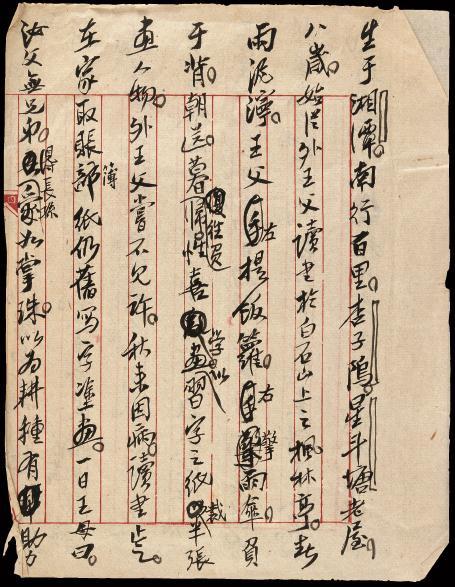 生于湘潭。南行百里。杏子隖星斗塘老屋。
八歲。始從外王父讀書於白石山上之楓林亭。春
雨泥濘。王父左提飯籮。右擎雨傘。負
于背。朝送暮迎。性喜學畫。以習字之紙裁半張
畫人物。外王父嘗不允許。秋末因病。讀書止之。
在家取賬簿紙仍舊寫字塗畫。一日王母曰。
汝父無兄弟。得長孫愛如掌珠。以為耕種有助力